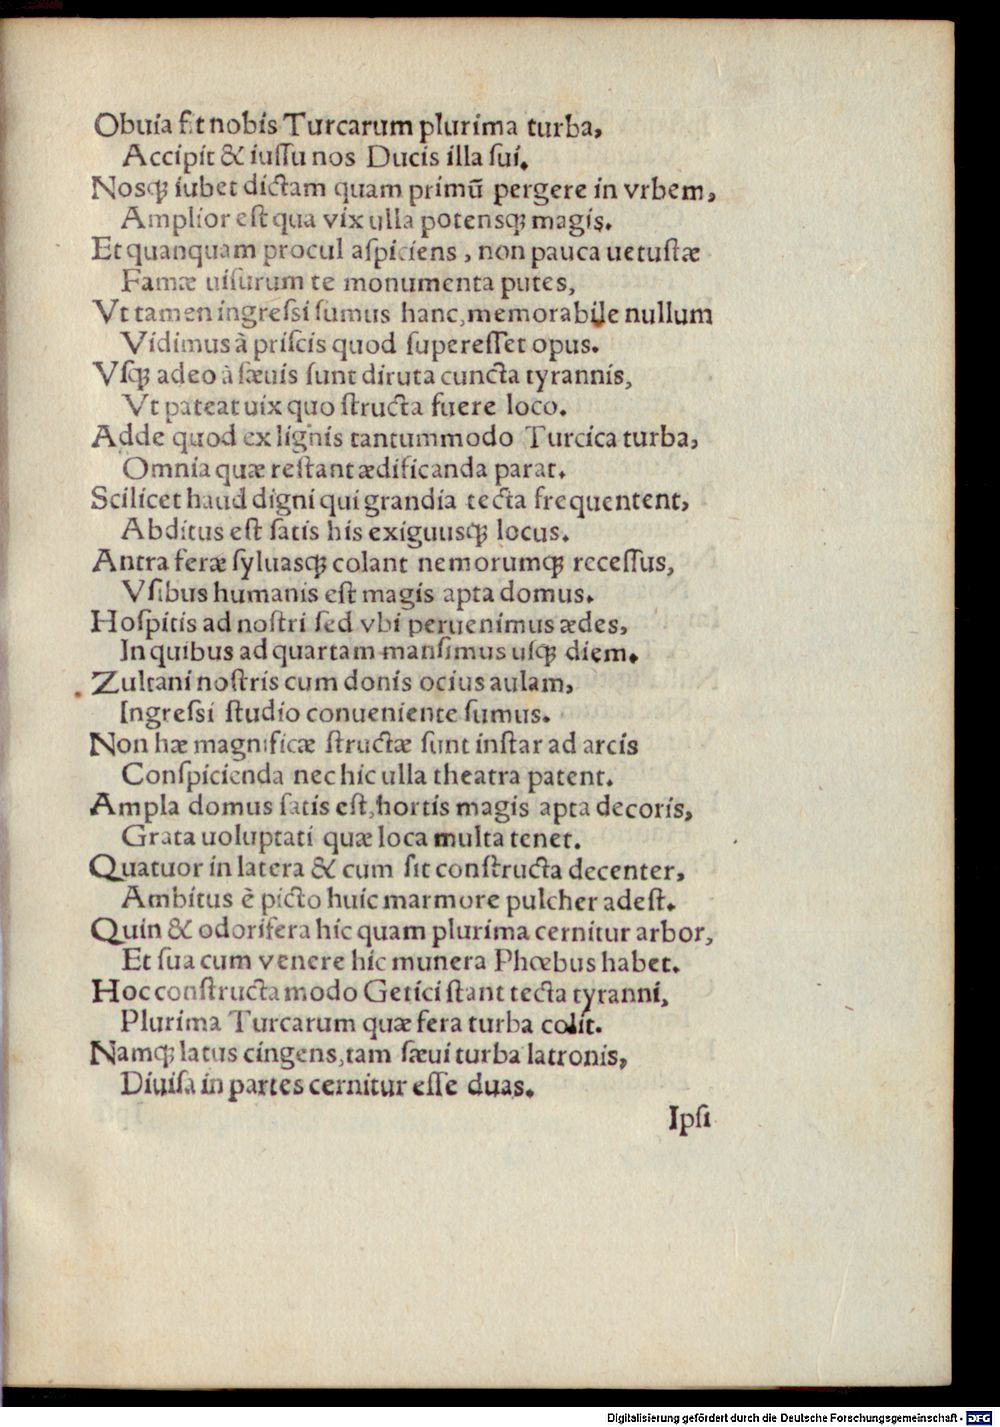 Obuia fit nobis Turcarum plurima turba,
Accipit & iussu nos Ducis illa sui.
Nosqꝫ iubet dictam quam primū pergere in vrbem,
Amplior est qua vix ulla potensqꝫ magis.
Et quanquam procul aspiciens, non pauca uetustæ
Famæ uisurum te monumenta putes,
Vt tamen ingressi sumus hanc, memorabile nullum
Vidimus à priscis quod superesset opus.
Vsqꝫ adeo à sæuis sunt diruta cuncta tyrannis,
Vt pateat uix quo structa fuere loco.
Adde quod ex lignis tantummodo Turcica turba,
Omnia quæ restant ædificanda parat.
Scilicet haud digni qui grandia tecta frequentent,
Abditus est satis his exiguusqꝫ locus.
Antra feræ syluasqꝫ colant nemorumqꝫ recessus,
Vsibus humanis est magis apta domus.
Hospitis ad nostri sed vbi peruenimus ædes,
In quibus ad quartam mansimus usqꝫ diem.
Zultani nostris cum donis ocius aulam,
Ingressi studio conueniente sumus.
Non hæ magnificæ structæ sunt instar ad arcis
Conspicienda nec hic ulla theatra patent.
Ampla domus satis est, hortis magis apta decoris,
Grata uoluptati quæ loca multa tenet.
Quatuor in latera & cum sit constructa decenter,
Ambitus è picto huic marmore pulcher adest.
Quin & odorifera hic quam plurima cernitur arbor,
Et sua cum venere hic munera Phœbus habet.
Hoc constructa modo Getici stant tecta tyranni,
Plurima Turcarum quæ fera turba colit.
Namqꝫ latus cingens, tam sæui turba latronis,
Diuisa in partes cernitur esse duas.
Ipsi
Digitalisierung gefördert durch die Deutsche Forschungsgemeinschaft - DFG